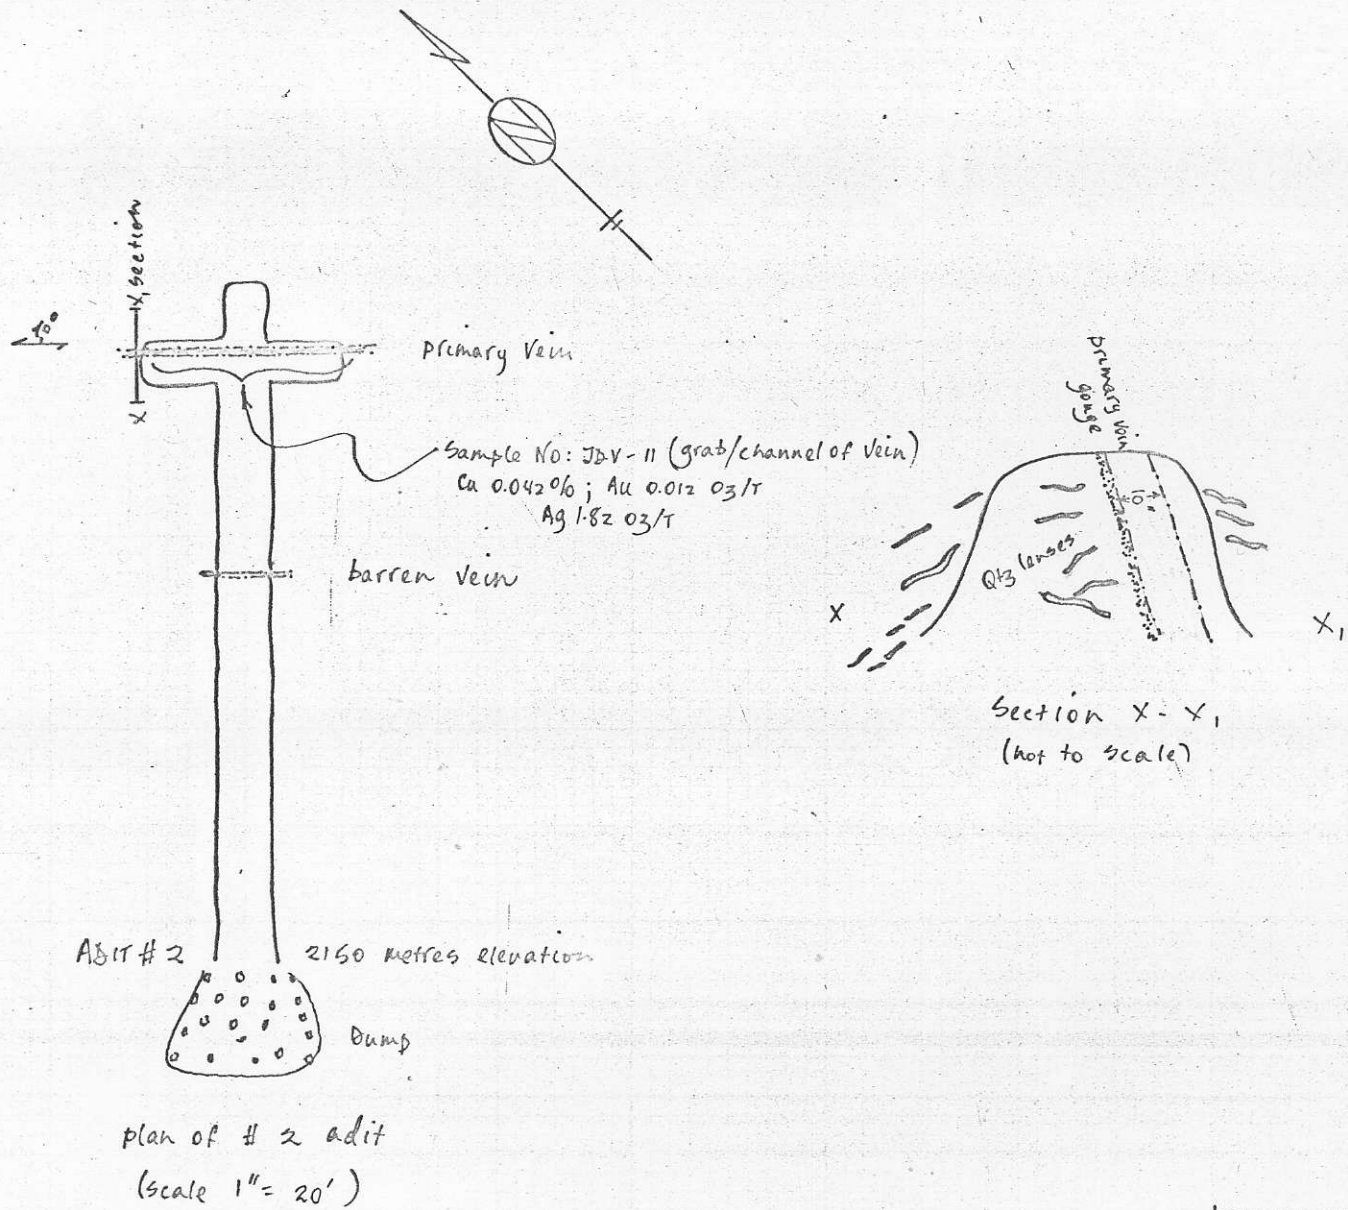 N
X, section
X
primary vein
Sample No: JDV-11 (grab/channel of vein)
Cu 0.042%; Au 0.012 oz/T
Ag 1.82 oz/T
barren vein
ADIT # 2
2150 metres elevation
Dump
plan of # 2 adit
(scale 1" = 20')
primary vein
gouge
10"
Qtz lenses
X
X₁
Section X - X₁
(not to scale)